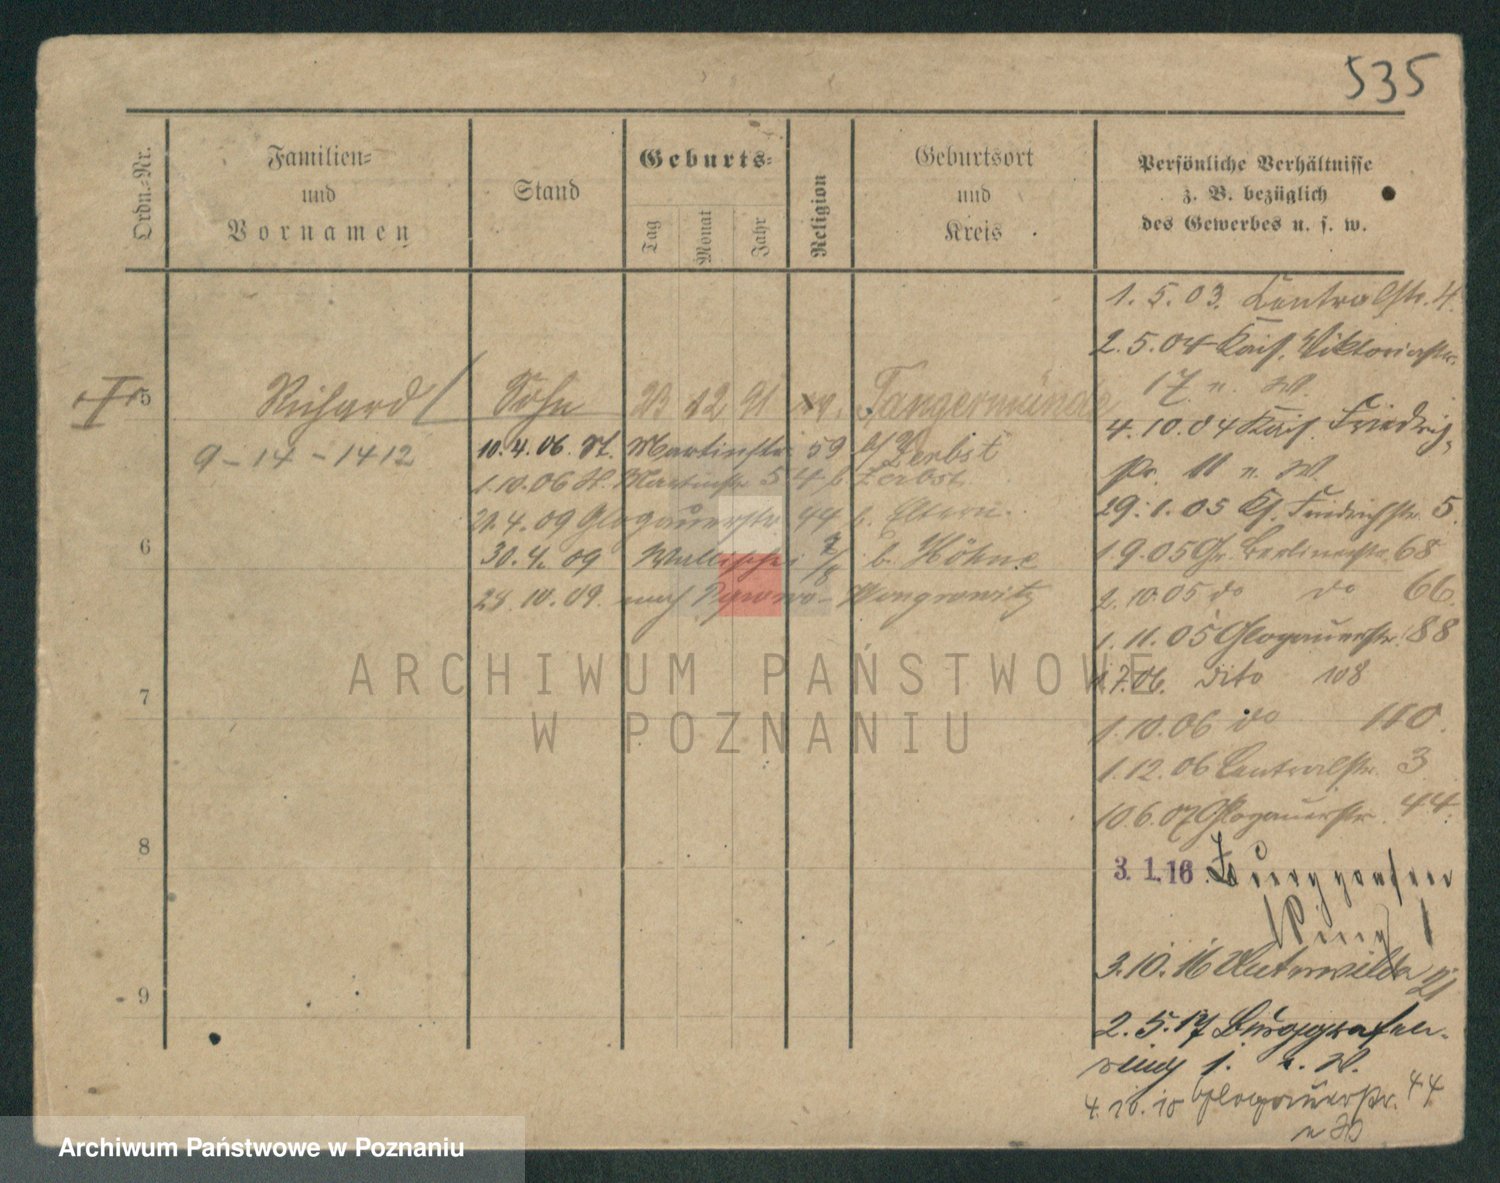 535
Ordn.-Nr.
Familien-
und
Vornamen
Stand
Geburts-
Tag
Monat
Jahr
Religion
Geburtsort
und
Kreis
Persönliche Verhältnisse
z. B. bezüglich
des Gewerbes u. s. w.
1. 5. 03. Centralstr. 4.
2. 5. 04 Kais. Viktoriastr.
17 n. W.
5 Richard Sohn 23 12 91 ev. Tangermünde
4. 10. 04 Kais. Friedrich-
str. 11 n. W.
9-14-1412
10. 4. 06. St. Martinstr. 59 b/ Zerbst
1. 10. 06 St. Martinstr. 54 b. Zerbst
21. 4. 09 Glogauerstr. 44 b. Eltern.
30. 4. 09 Wallischei 7/8 b. Höhne
28. 10. 09. nach Wongrowitz
29. 1. 05 Kl. Friedrichstr. 5.
6
1. 9. 05 Gr. Berlinerstr. 68
2. 10. 05 do do 66.
1. 11. 05 Glogauerstr. 88
1. 7. 06. dito 108
7
1. 10. 06 do 110.
1. 12. 06 Centralstr. 3
10. 6. 07 Glogauerstr. 44.
8
3. 1. 16 Burggrafen
Ring 1
3. 10. 16 Unterwilda 21
9
2. 5. 17 Burggrafen-
ring 1. n. W.
4. 10. 18 Glogauerstr. 44
ARCHIWUM PAŃSTWOWE
W POZNANIU
Archiwum Państwowe w Poznaniu